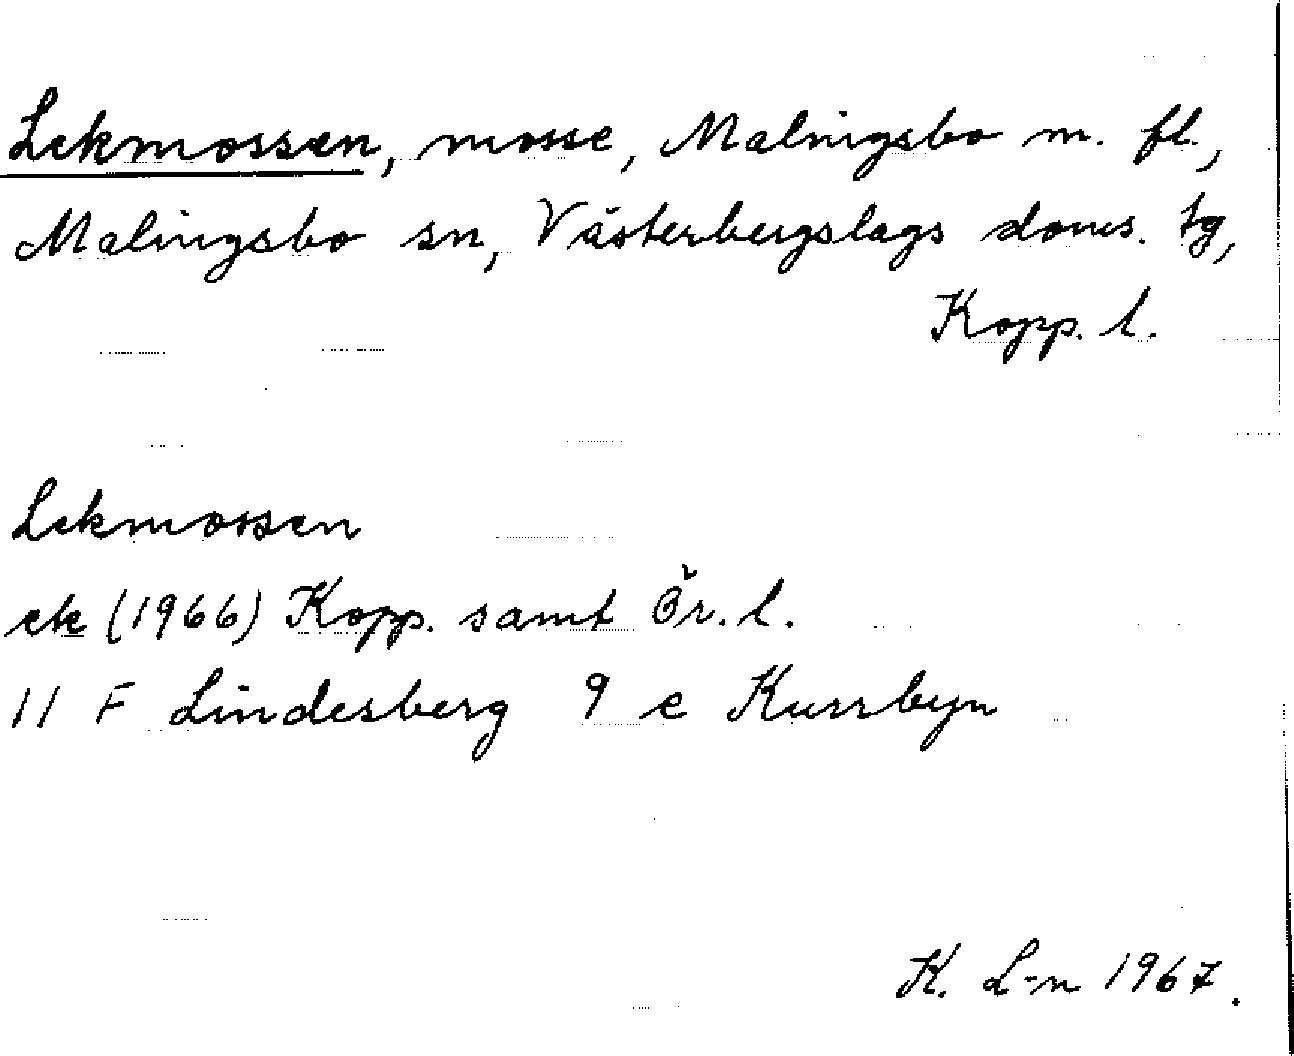 Lekmossen, mosse, Malingsbo m. fl.,
Malingsbo sn, Västerbergslags doms. tg,
Kopp. l.
Lekmossen
ek (1966) Kopp. samt Ör. l.
11 F Lindesberg 9 e Kurrbyn
K. L-n 1967.